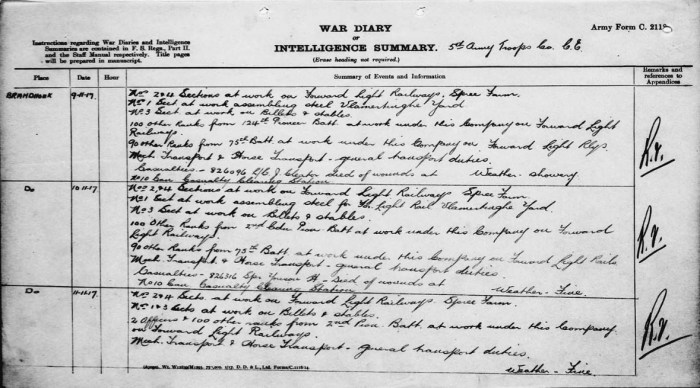 WAR DIARY
or
INTELLIGENCE SUMMARY. 5th Army Troops Co. C.E.
(Erase heading not required.)
Army Form C. 2118
Instructions regarding War Diaries and Intelligence
Summaries are contained in F. S. Regs., Part II.
and the Staff Manual respectively. Title pages
will be prepared in manuscript.
Place Date Hour Summary of Events and Information Remarks and references to Appendices
BRANDHOEK 9-11-17 Nos 2&4 Sections at work on Forward Light Railways. Spree Farm.
No 1 Sect at work assembling steel Vlamertinghe Yard
No 3 Sect at work on Billets & stables.
100 Other Ranks from 124th Pioneer Batt at work under this Company on Forward Light
Railways.
90 other Ranks from 75th Batt at work under this Company on Forward Light Rlys
Mech. Transport & Horse Transport - general transport duties.
Casualties - 826096 Died of wounds at Weather - showery
No 10 Can Casualty Clearing Station
Do 10.11.17 Nos 2&4 Sections at work on Forward Light Railways Spree Farm.
No 1 Sect at work assembling steel for Light Rail Vlamertinghe Yard.
No 3 Sect at work on Billets & stables.
100 Other Ranks from 2nd Pion Batt at work under this Company on Forward
Light Railways.
90 other Ranks from 75th Batt at work under this Company on Forward Light Rails
Mech Transport & Horse Transport - general transport duties.
Casualties - 826316 Spr H - Died of wounds at
No 10 Can Casualty Clearing Station Weather - Fine
Do 11-11-17 Nos 2&4 Sects. at work on Forward Light Railways. Spree Farm.
Nos 1&3 Sects at work on Billets & stables.
2 Officers & 100 other ranks from 2nd Pion. Batt. at work under this Company
on Forward Light Railways.
Mech. Transport & Horse Transport - general transport duties.
Weather - Fine